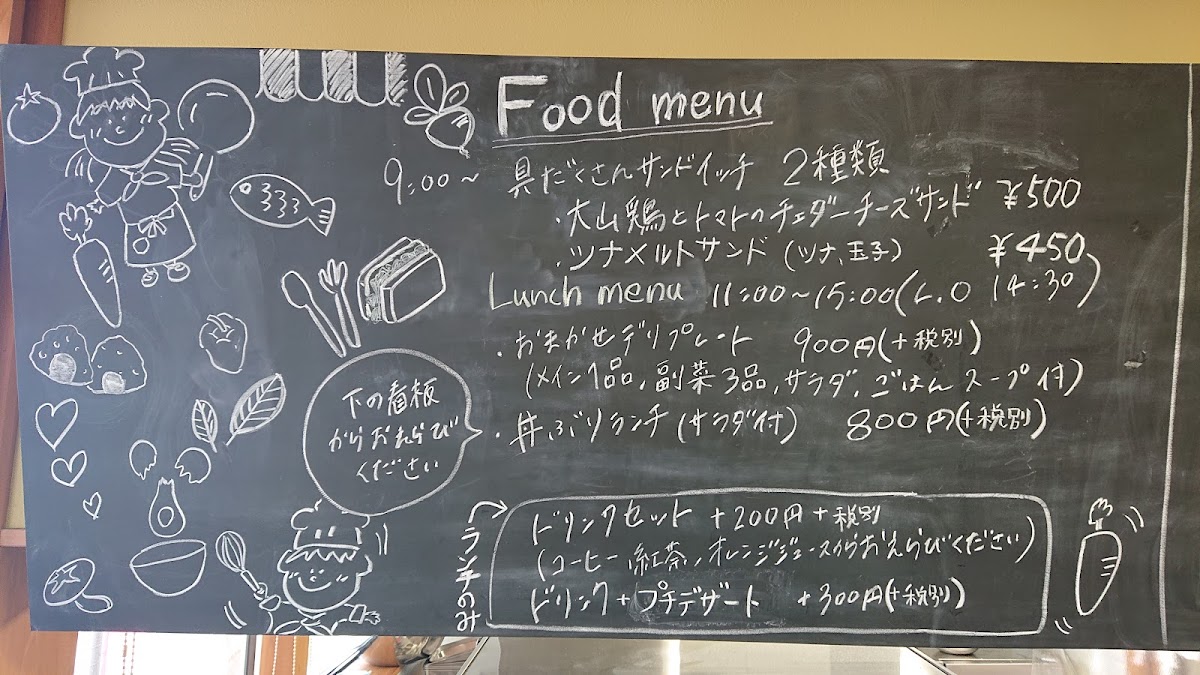 Food menu
9:00~ 具だくさんサンドイッチ 2種類
・大山鶏とトマトのチェダーチーズサンド ¥500
・ツナメルトサンド(ツナ、玉子) ¥450
Lunch menu 11:00~15:00(L.O 14:30)
・おまかせデリプレート 900円(+税別)
(メイン1品,副菜3品,サラダ,ごはん スープ付)
・丼ぶりランチ(サラダ付) 800円(+税別)
下の看板
からおえらび
ください
ランチのみ
ドリンクセット +200円+税別
(コーヒー,紅茶,オレンジジュースからおえらびください)
ドリンク+プチデザート +300円(+税別)